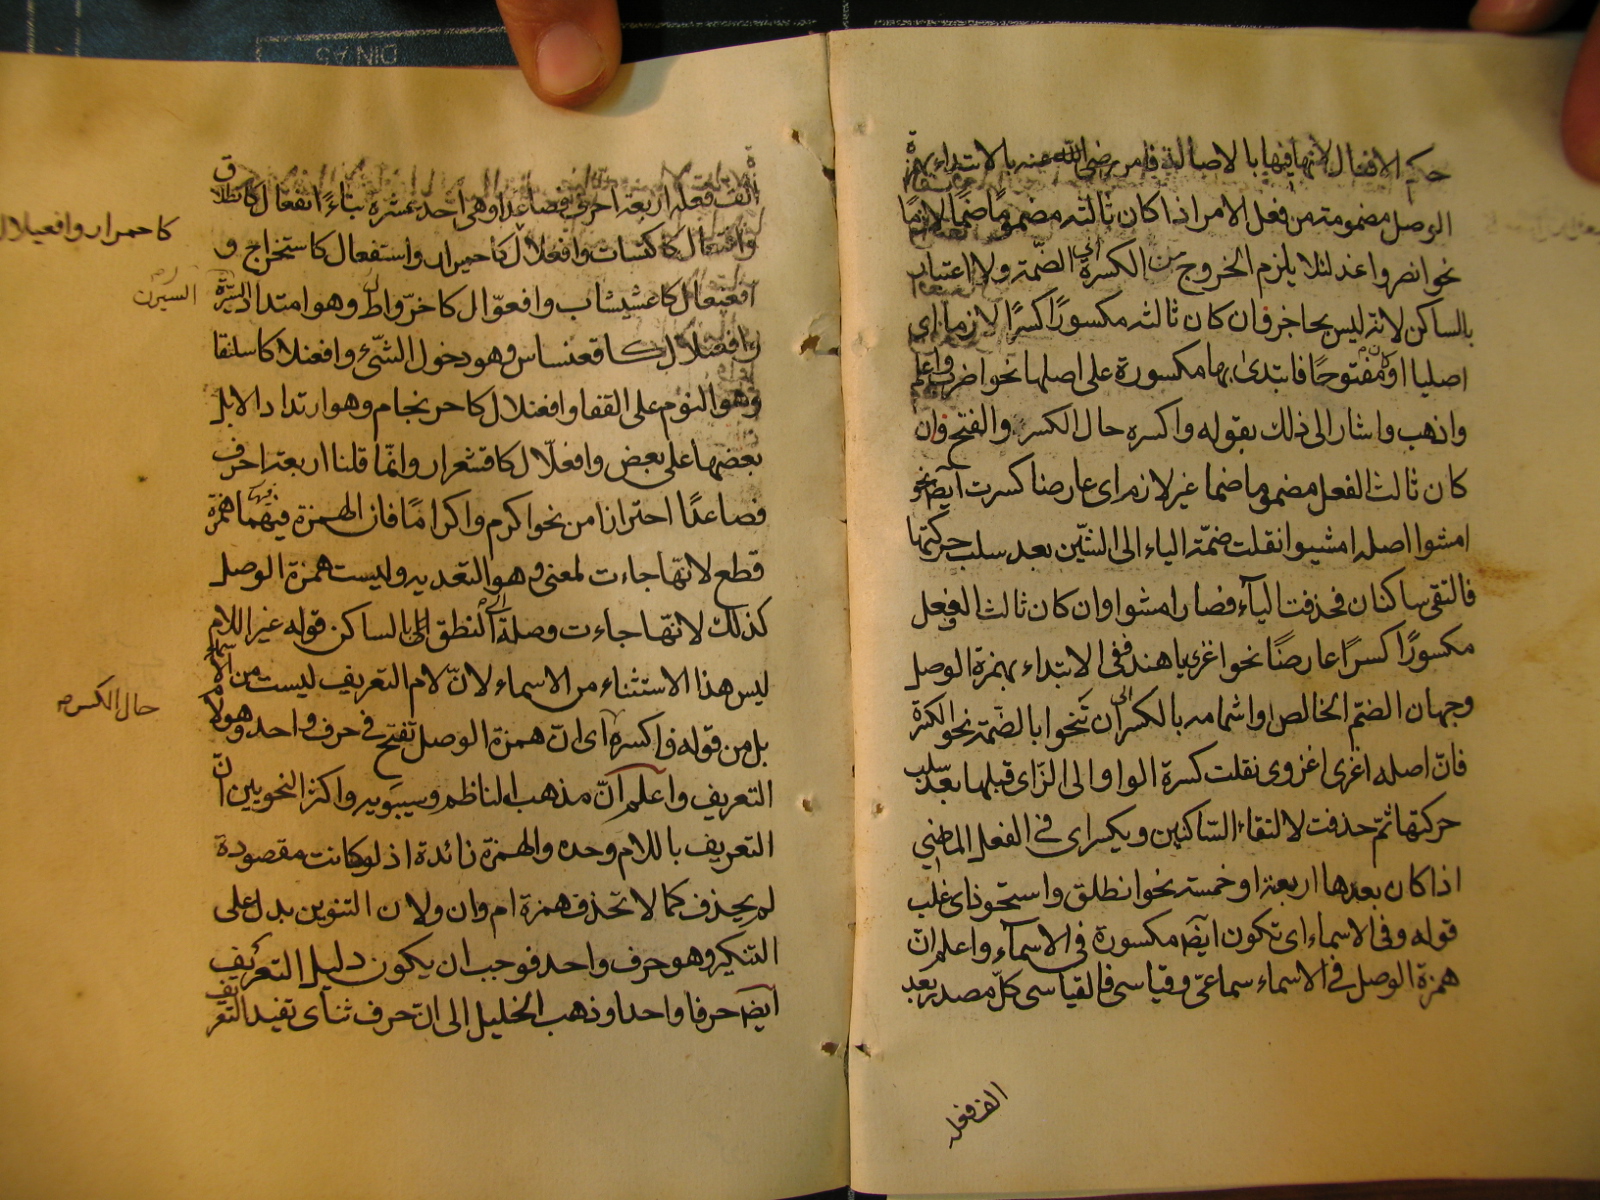 حكم الافعال لانها فيها بالاصالة فامر رضي الله عنه بالابتداء بهمزة
الوصل مضمومة من فعل الامر اذا كان ثالثه مضموما ضما لازما
نحو انصر واعد لئلا يلزم الخروج من الكسرة الى الضمة ولا اعتبار
بالساكن لانه ليس بحاجز وان كان ثالثه مكسورا كسرا لازما اى
اصليا او مفتوحا فابتدئ بها مكسورة على اصلها نحو اضرب واعلم
واذهب واشار الى ذلك بقوله واكسره حال الكسر والفتح وان
كان ثالث الفعل مضموما ضما غير لازم اى عارضا كسرت ايضا نحو
امشوا اصله امشيوا نقلت ضمة الياء الى الشين بعد سلب حركتها
فالتقى ساكنان فحذفت الياء فصار امشوا وان كان ثالث الفعل
مكسورا كسرا عارضا نحو اغزى يا هند ففى الابتداء بهمزة الوصل
وجهان الضم الخالص واشمامه بالكسر اى ان تنحوا بالضمة نحو الكسرة
فان اصله اغزى اغزوى نقلت كسرة الواو الى الزاى قبلها بعد سلب
حركتها ثم حذفت لالتقاء الساكنين ويكسر اى فى الفعل الماضي
اذا كان بعدها اربعة او خمسة نحو انطلق واستحوذ اى غلب
قوله وفى الاسماء اى تكون ايضا مكسورة فى الاسماء واعلم ان
همزة الوصل فى الاسماء سماعى وقياسى فالقياسى كل مصدر بعد
الف فعله
الف فعله اربعة احرف فصاعدا وهى احد عشرة بناء انفعال كانطلاق
وافتعال كاكتساب وافعلال كاحمرار واستفعال كاستخراج و
كاحمرار وافعيلال
افعيعال كاعشيشاب وافعوال كاخرواط وهو امتداد السير
السيرن
وافعنلال كاقعنساس وهو دخول الشئ وافعنلا كاسلنقا
وهو النوم على القفا وافعنلال كاحرنجام وهو ارتداد الابل
بعضها على بعض وافعلال كاقشعرار وانما قلنا اربعة احرف
فصاعدا احترازا من نحو اكرم واكراما فان الهمزة فيهما همزة
قطع لانها جاءت لمعنى وهو التعديه وليست همزة الوصل
كذلك لانها جاءت وصلة الى النطق بالساكن قوله غير اللام
ليس هذا الاستثناء من الاسماء لان لام التعريف ليست من الاسماء
حال الكسره
بل من قوله واكسره اى ان همزة الوصل تفتح فى حرف واحد وهو لام
التعريف واعلم ان مذهب الناظم وسيبويه واكثر النحويين ان
التعريف باللام وحده والهمزة زائدة اذ لو كانت مقصودة
لم يحذف كما لا تحذف همزة ام وان ولان التنوين يدل على
التنكير وهو حرف واحد فوجب ان يكون دليل التعريف
ايضا حرفا واحدا وذهب الخليل الى ان حرف ثنائ تفيد التعريف